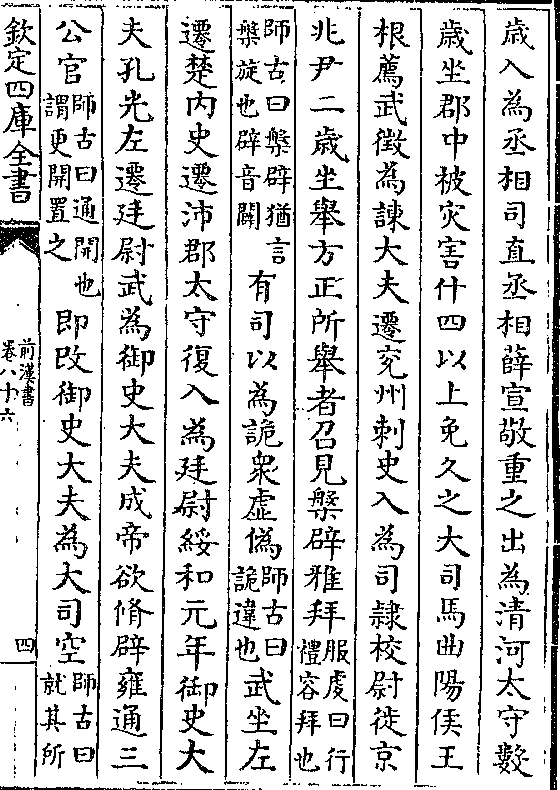 歲入為丞相司直丞相薛宣敬重之出為清河太守數
歲坐郡中被灾害什四以上免久之大司馬曲陽侯王
根薦武徵為諫大夫遷兖州刺史入為司隷校尉徙京
兆尹二歲坐舉方正所舉者召見槃辟雅拜服虔曰行禮容拜也
師古曰槃辟猶言槃旋也辟音闢有司以為詭衆虛偽師古曰詭違也武坐左
遷楚内史遷沛郡太守復入為廷尉綏和元年御史大
夫孔光左遷廷尉武為御史大夫成帝欲脩辟雍通三
公官師古曰通開也謂更開置之即改御史大夫為大司空師古曰就其所
欽定四庫全書
前漢書
卷八十六
四